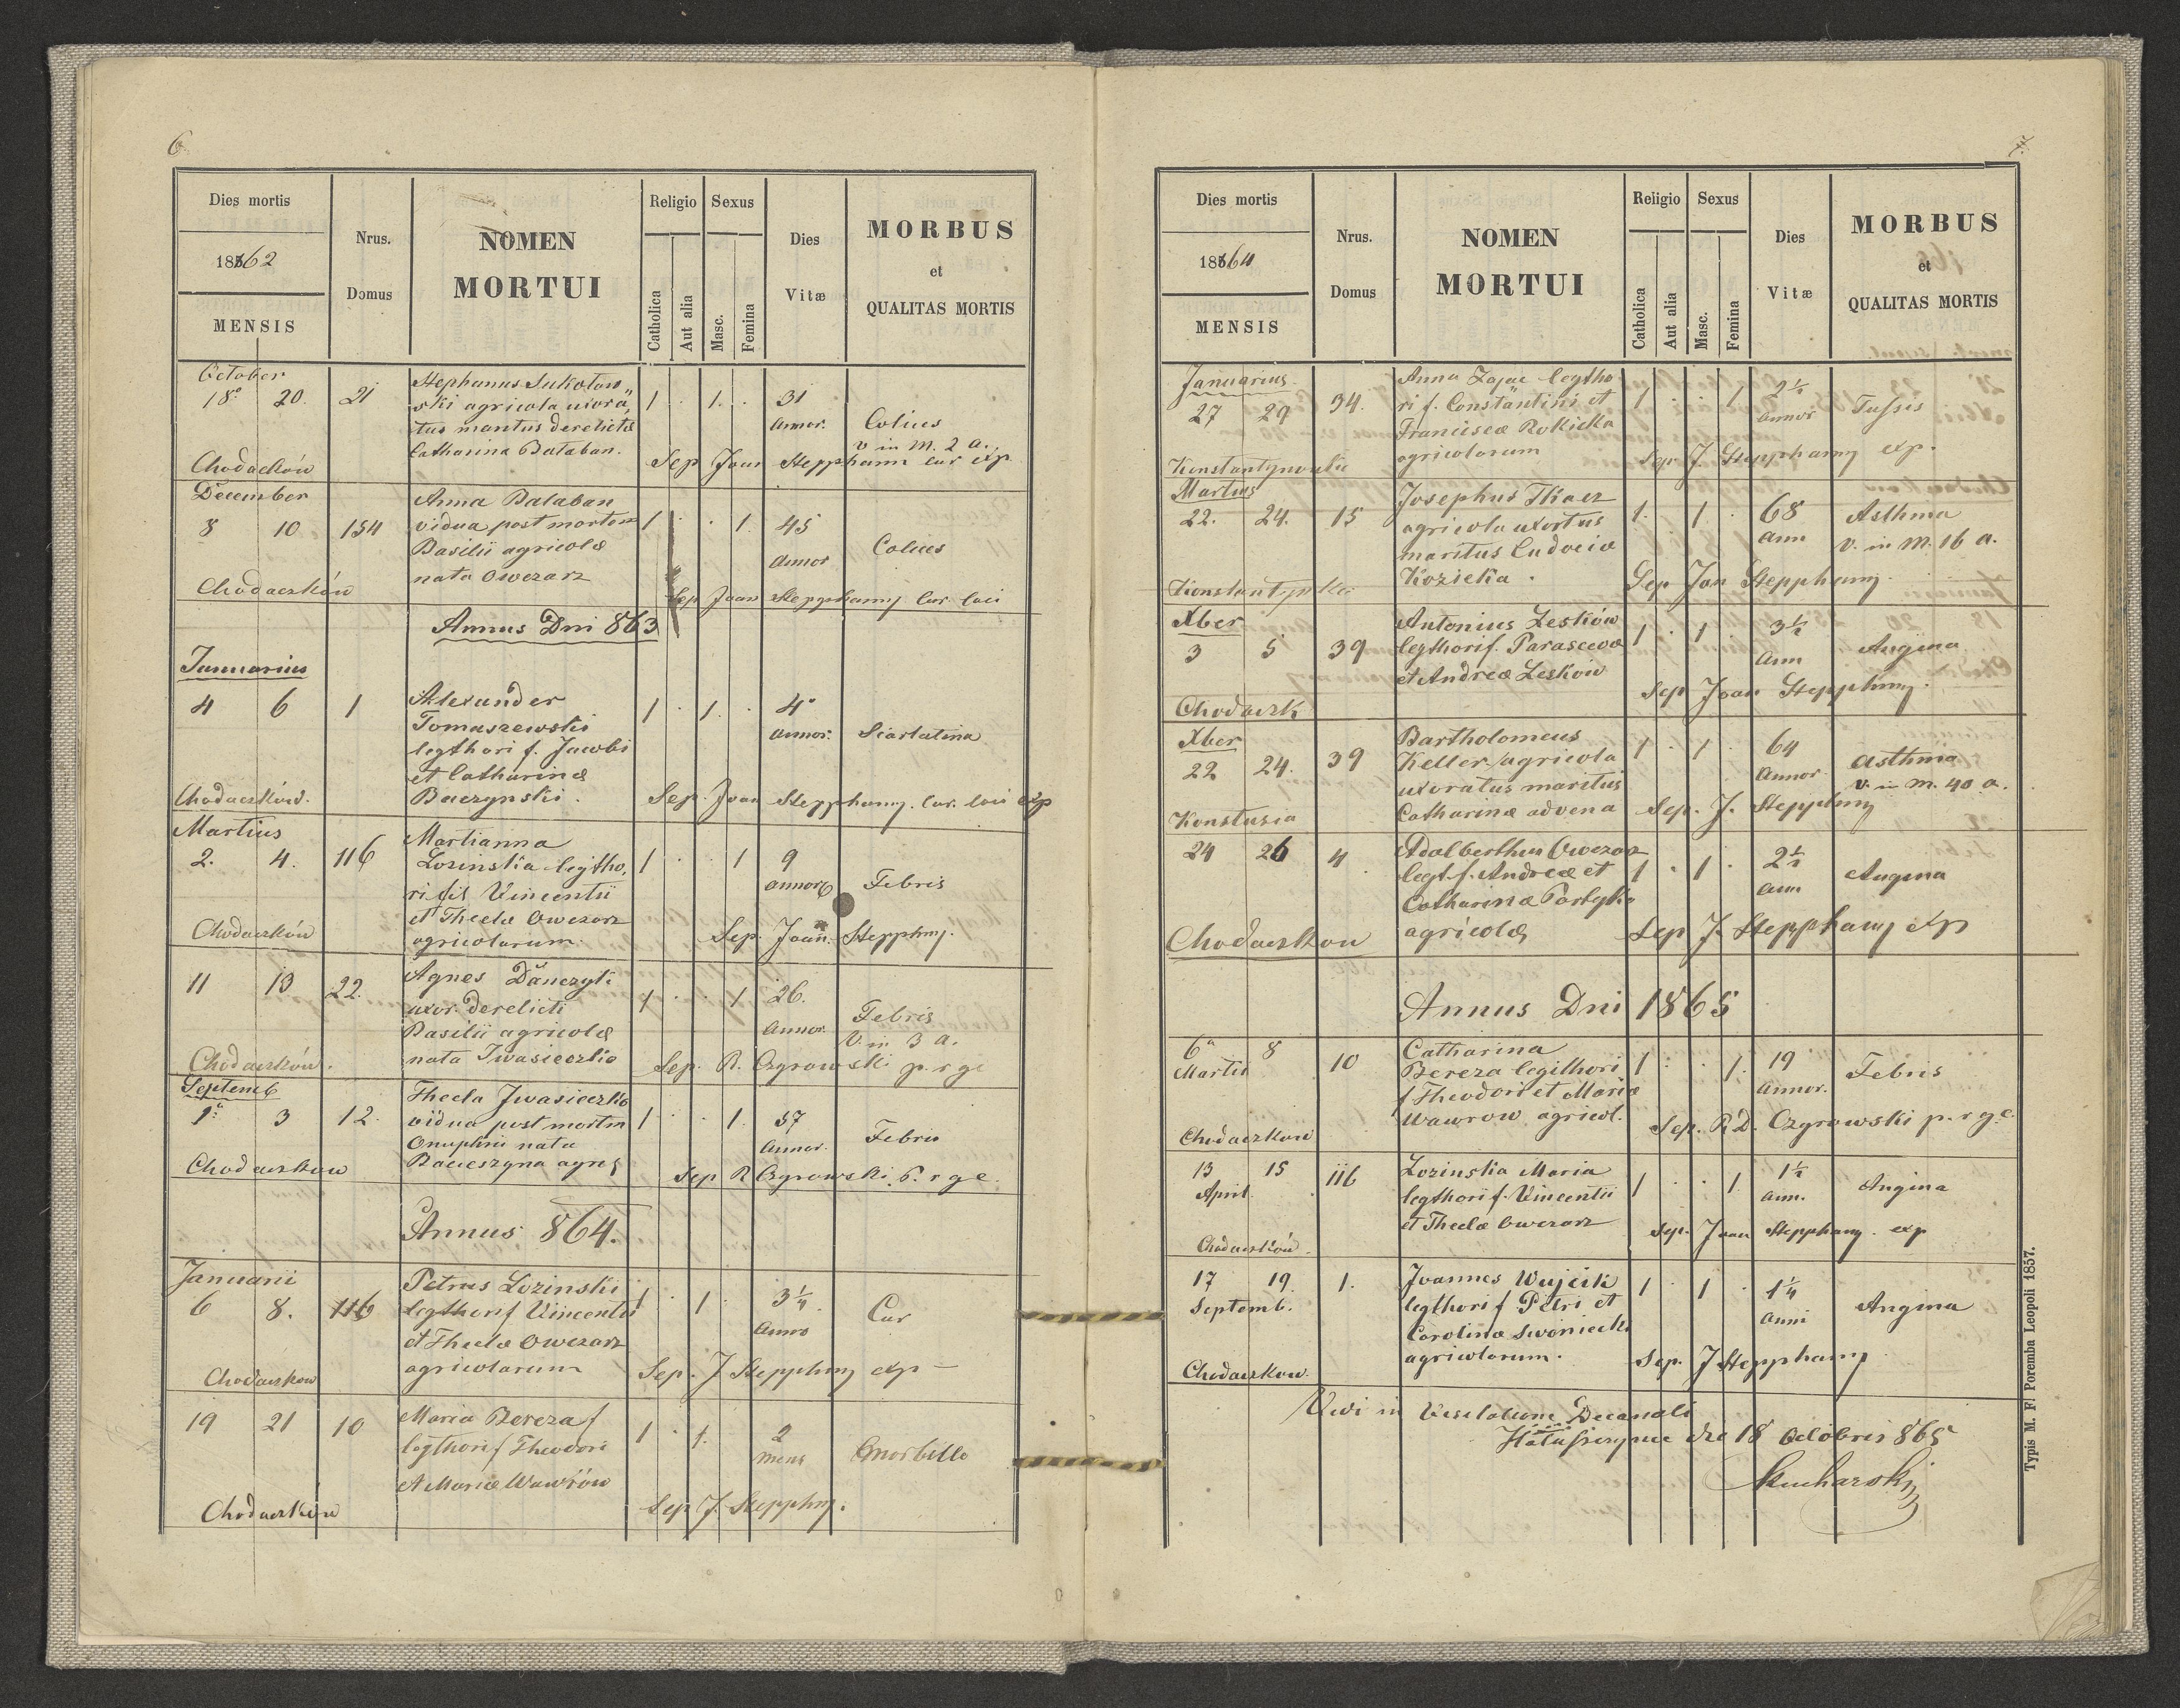 6
Dies mortis
1862
MENSIS
Nrus.
Domus
NOMEN
MORTUI
Religio
Catholica
Aut alia
Sexus
Masc.
Femina
Dies
Vitæ
MORBUS
et
QUALITAS MORTIS
October
18ª 20. 21 1 . 1. .
Stephanus Sukotow„
ski agricola uxora„
tus maritus derelictæ
Catharina Bałaban.
31
Annor.
Colices
v in M. 2 a.
Chodaczków
Sep Joan Stepphann Cur exp
December
8 10 154 1 . . 1.
Anna Balaban
vidua post mortem
Basilii agricolæ
nata Owczarz
45
Annor
Colices
Chodaczków
Sep Joan Stepphany Cur loci
Annus Dni 863
Januarius
4 6 1 1 . 1. .
Alexander
Tomaszewski
legthori f. Jacobi
et Catharinæ
Baczynski.
4
Annor.
Scarlatina
Chodaczków.
Sep. Joan Stepphany. Cur. loci exp
Martius
2. 4. 116 1 . . 1
Martianna
Lozinska legtho,
ri fil Vincentii
et Theclæ Owczarz
agricolarum.
9
Annor
Febris
Chodaczków
Sep. Joan. Stepphny.
11 13 22. 1 . . 1
Agnes Danczyk
uxor. derelicti
Basilii agricolæ
nata Iwasieczko
26.
Annor.
Febris
V. in 3 a.
Chodaczków.
Sep. R. Ozgrowski p. r g c
Septemb
1ª 3 12. 1 . . 1.
Thecla Iwasieczko
vidua post mortm
Onuphrii nata
37
Annor.
Febris
Chodaczkow
Sep R Ozgrowski. P. r g c.
Annus 864.
Januarii
6 8. 116 1 . 1 .
Petrus Lozinski
legthori f Vincentii
et Theclæ Owczarz
agricolarum
3¼
Anno
Cur
Chodaczkow
Sep. J Stepphny exp —
19 21 10 1 . 1.
Maria Bereza f
legthori f Theodori
et Mariæ Wawrów
2
mens
Morbillo
Chodaczków
Sep J. Stepphny.
7.
Dies mortis
1864
MENSIS
Nrus.
Domus
NOMEN
MORTUI
Religio
Catholica
Aut alia
Sexus
Masc.
Femina
Dies
Vitæ
MORBUS
et
QUALITAS MORTIS
Januarius
27 29 34. 1 . . 1
Anna Zając legtho
ri f. Constantini et
Franciscæ Rokicka
agricolarum
2½
Annor
Tussis
Sep. J. Stepphany exp.
Martius
22. 24. 15 1. 1 .
Josephus Tkacz
agricola uxortus
maritus Ludovicæ
Kozicka.
68
Ann
Asthma
v. in M. 16 a.
Sep Jan Stepphany.
Xber
3 5 39 1 . 1 .
Antonius Lesków
legthori f. Parascevæ
et Andreæ Lesków
3½
Ann
Angina
Chodaczk
Sep Joan Stepphny.
Xber
22 24. 39 1 . 1 .
Bartholomeus
Keller agricola
uxoratus maritus
Catharinæ advena
64
Annor.
Asthma
v. in M. 40 a.
Sep. J. Stepphny
24 26 4 1 . 1 .
Adalberthus Owczarz
legt f. Andreæ et
agricolæ
2½
Ann
Angina
Chodaczkow
Sep J. Stepphany exp
Annus Dni 1865
6ª 8 10 1 . . 1.
Martii
Catharina
Bereza legithori
f Theodori et Mariæ
Wawrow agricol.
19
Annor.
Febris
Chodaczkow
Sep. R D. Ozgrowski p. r g c.
13 15 116 1 . . 1.
April.
Lozinska Maria
legthori f. Vincentii
et Theclæ Owczarz
1½
Ann.
Angina
Chodaczków.
Sep. Joan Stepphany. exp
17 19. 1. 1 . 1 .
Septemb.
Joannes Wujcik
legthori f Petri et
agricolarum.
1¼
Anni
Angina
Chodaczkow.
Sep. J Stepphany
Vidi in Visitatione Decanali
die 18 Octobris 865
Kucharski
Typis M. F. Poremba Leopoli 1857.